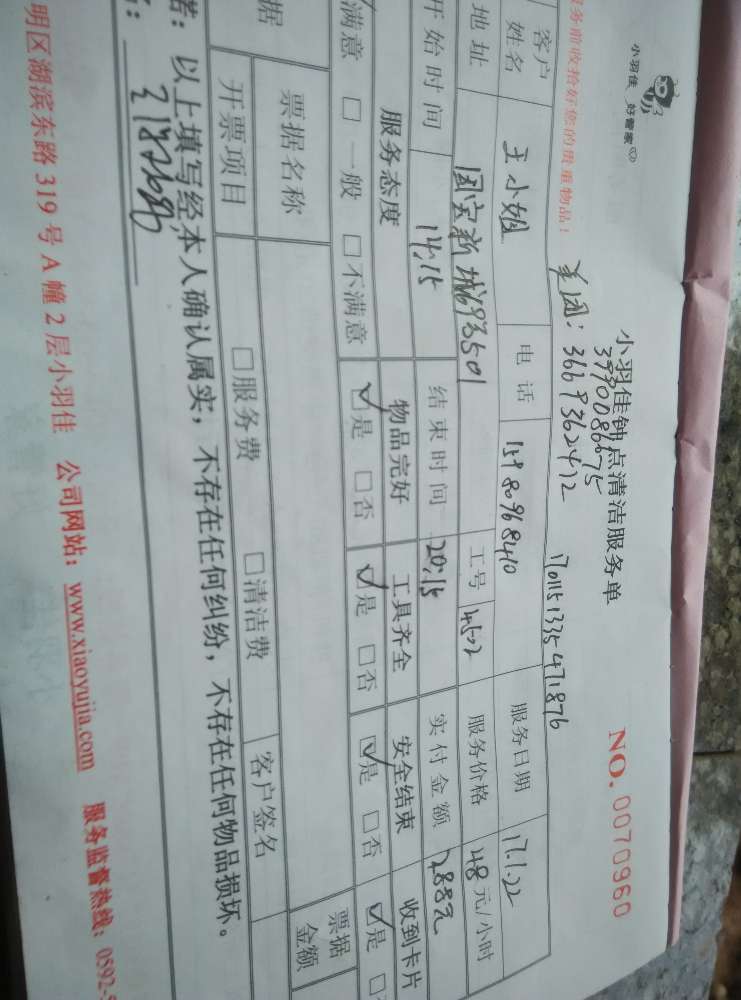 小羽佳 好管家
小羽佳钟点清洁服务单
NO. 0070960
务前收拾好您的贵重物品！
美团：3669362412
170115133547 1876
客户姓名 王小姐 电话 15980968410 服务日期 17.1.22
地址 国宝新城693501 工号 4502 服务价格 48元/小时
开始时间 14:15 结束时间 20:15 实付金额 288元
服务态度 物品完好 工具齐全 安全结束 收到卡片
满意 □一般 □不满意 ☑是 □否 ☑是 □否 ☑是 □否 ☑是 □
据 票据名称 票据金额
开票项目 □服务费 □清洁费 客户签名
诺：以上填写经本人确认属实，不存在任何纠纷，不存在任何物品损坏。
明区湖滨东路319号A幢2层小羽佳 公司网站：www.xiaoyujia.com 服务监督热线：0592-5